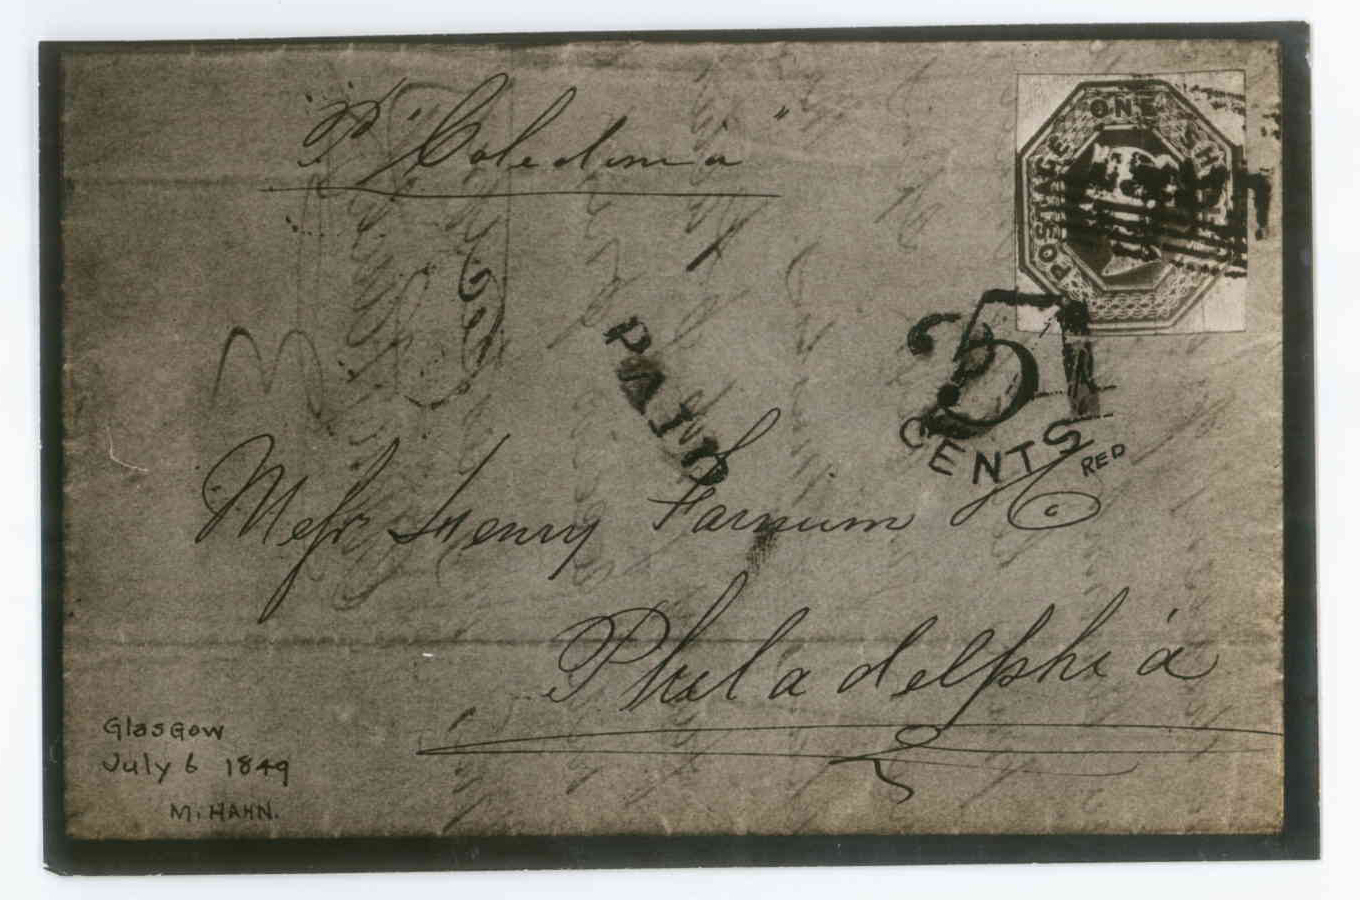 P "Caledonia"
POSTAGE ONE SH
PAID
5
CENTS
RED
Messr Henry Farnum & Co
Philadelphia
Glasgow
July 6 1849
M. HAHN.